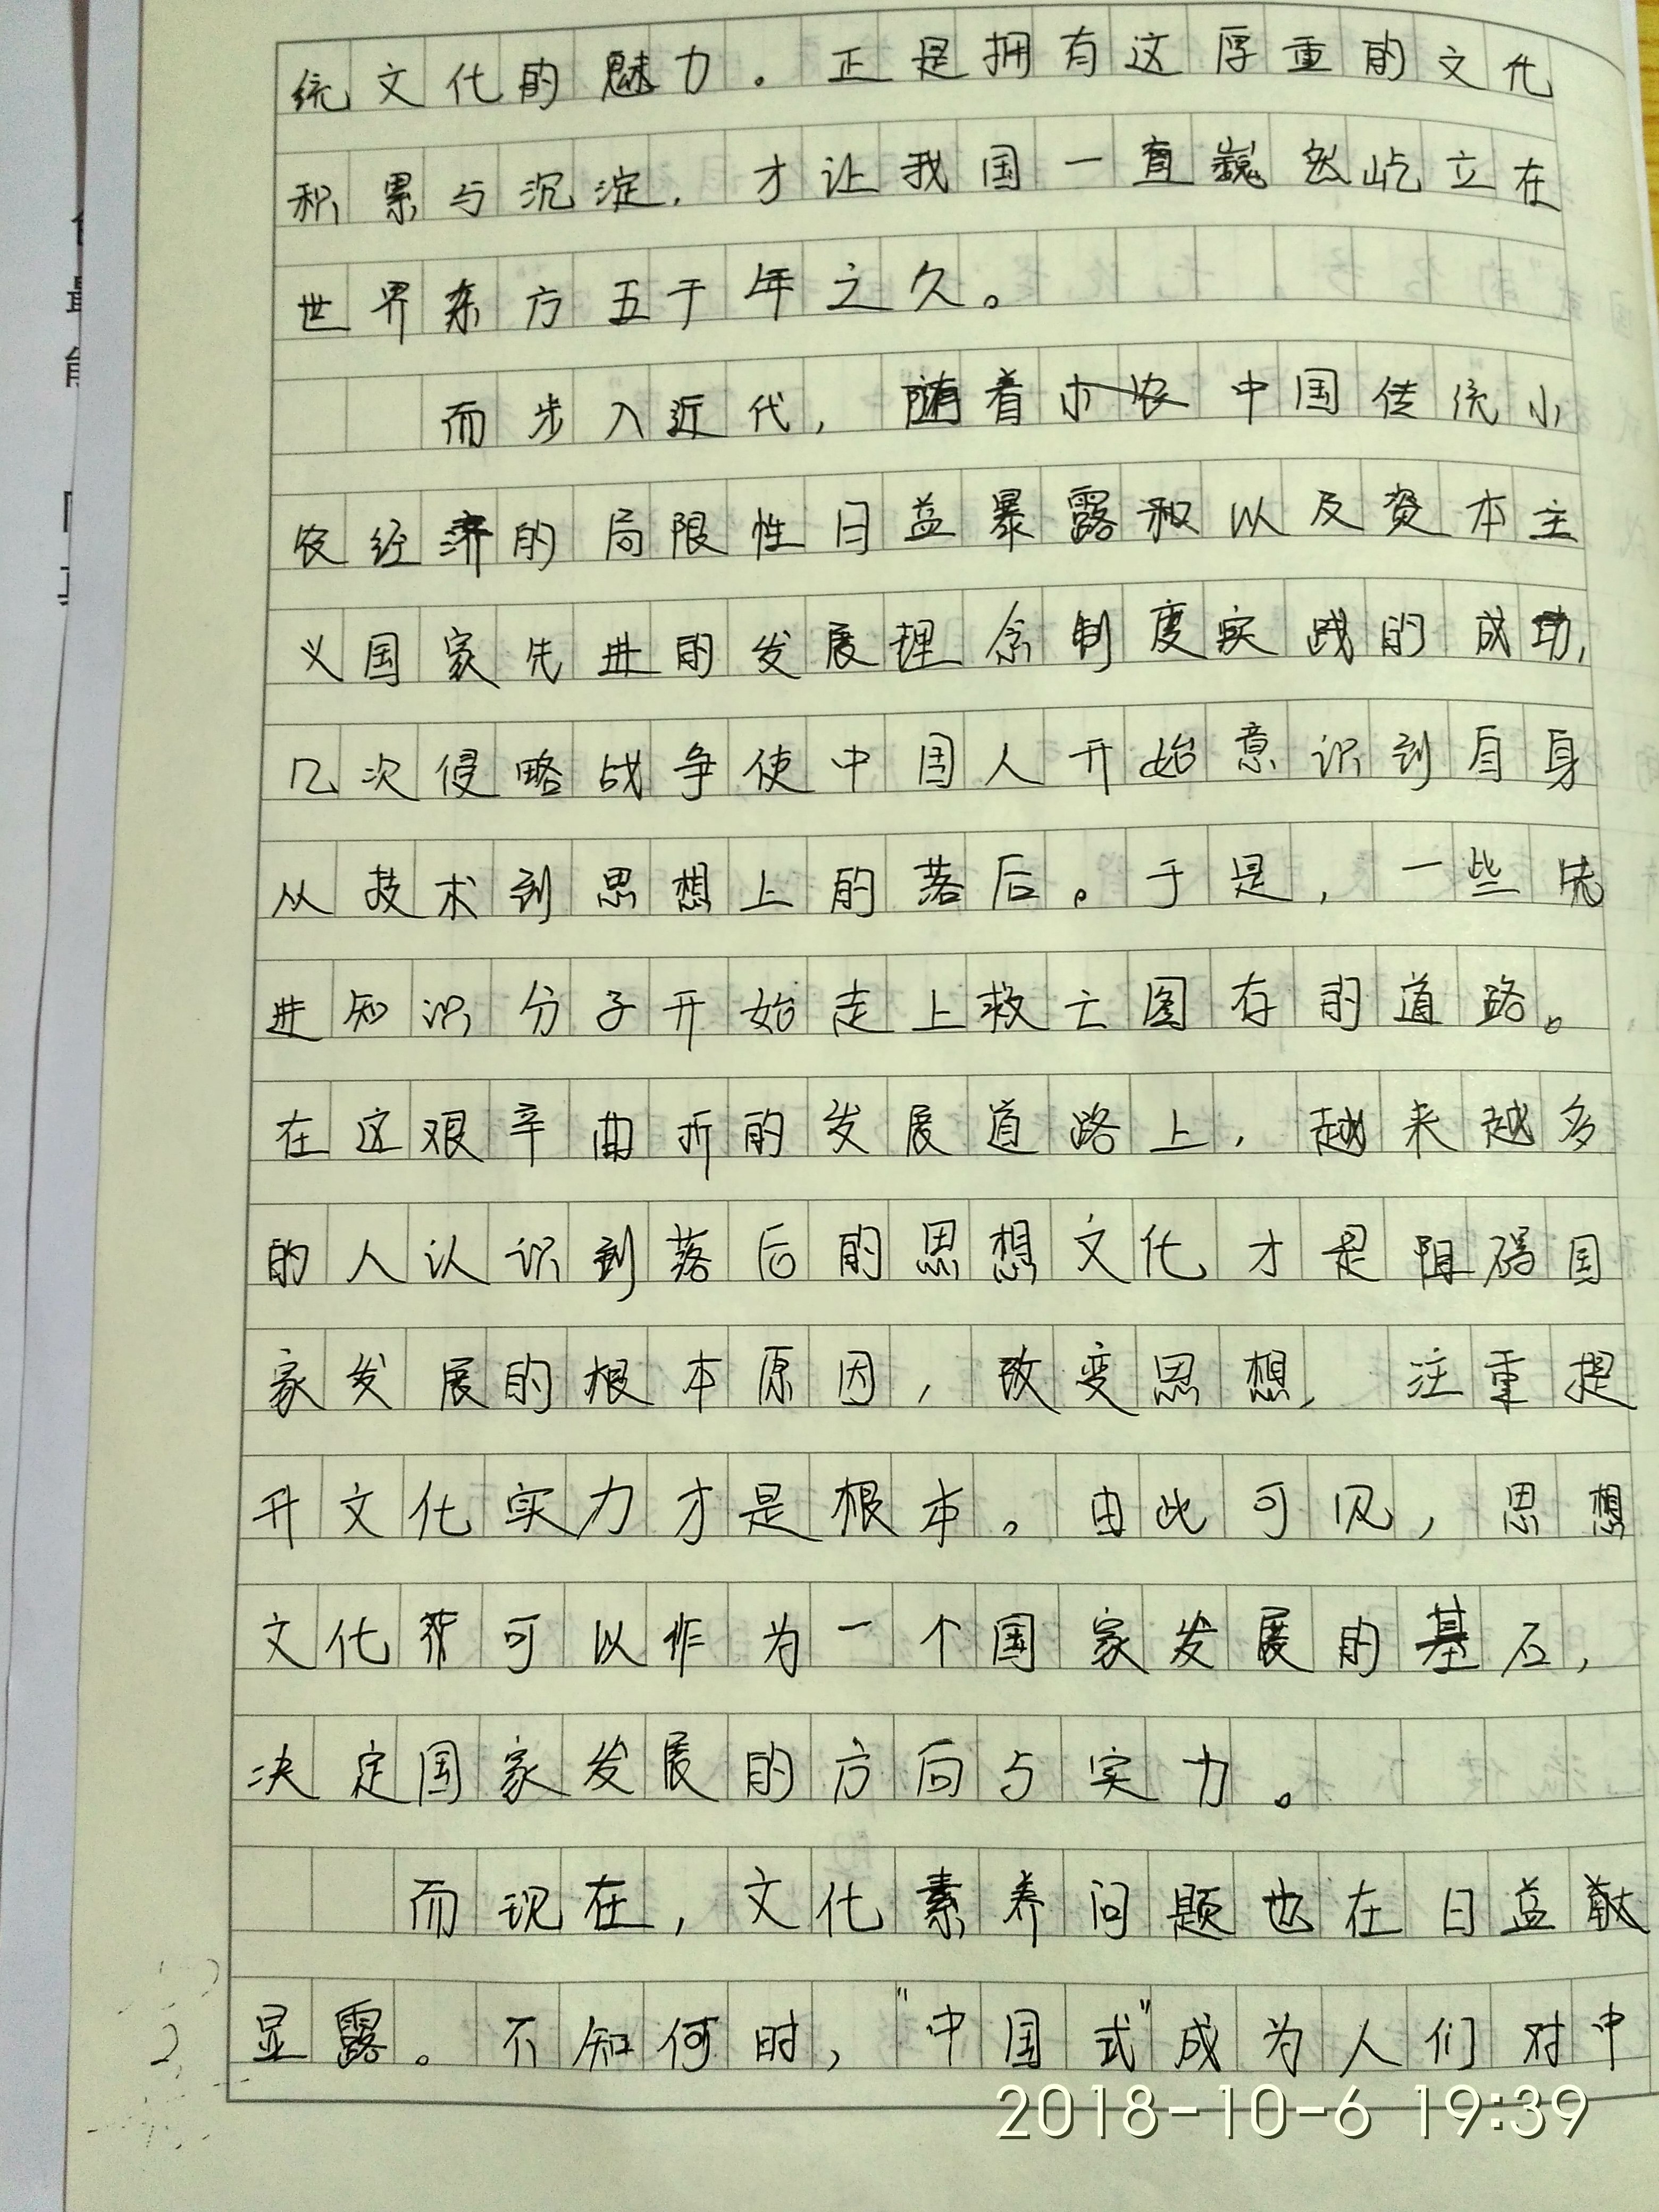 统文化的魅力。正是拥有这厚重的文化
积累与沉淀，才让我国一直巍然屹立在
世界东方五千年之久。
而步入近代，随着中国传统小
农经济的局限性日益暴露和以及资本主
义国家先进的发展理念制度实践的成功，
几次侵略战争使中国人开始意识到自身
从技术到思想上的落后。于是，一些先
进知识分子开始走上救亡图存的道路。
在这艰辛曲折的发展道路上，越来越多
的人认识到落后的思想文化才是阻碍国
家发展的根本原因，改变思想，注重提
升文化实力才是根本。由此可见，思想
文化可以作为一个国家发展的基石，
决定国家发展的方向与实力。
而现在，文化素养问题也在日益
显露。不知何时，“中国式”成为人们对中
2
2018-10-6 19:39